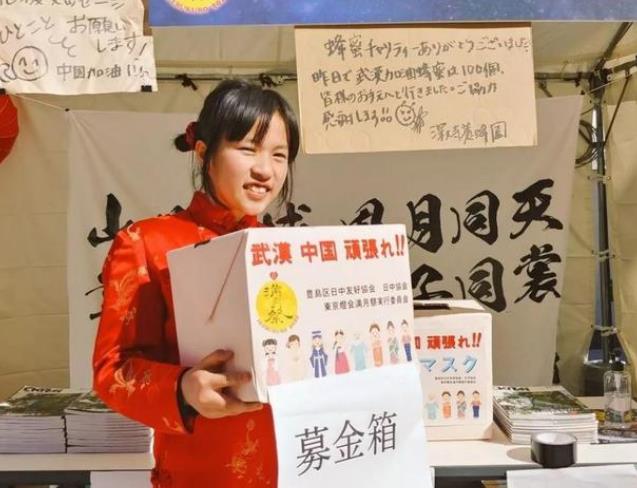 ひとこと お願い
します!
中国加油!!!
蜂蜜チャリティーありがとうございました
昨日で武漢加油蜂蜜は100個、
皆様のお手元へと行きました。ご協力
感謝します!!
山 月同天
子同裳
武漢 中国 頑張れ!!
満月祭
豊島区日中友好協会 日中協会
東京燈会満月祭実行委員会
募金箱
頑張れ!!
マスク